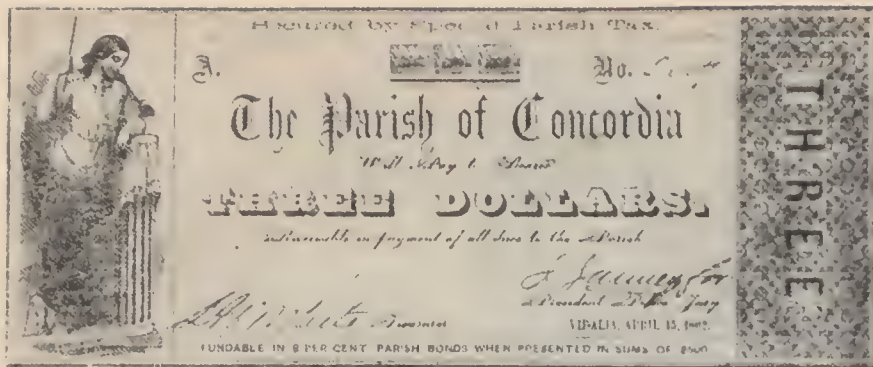 Secured by Special Parish Tax.
A. No.
The Parish of Concordia
Will Pay to Bearer
THREE DOLLARS.
in payment of all dues to the Parish
President Police Jury
Treasurer
VIDALIA, APRIL 15, 1862.
FUNDABLE IN 8 PER CENT PARISH BONDS WHEN PRESENTED IN SUMS OF $500
THREE